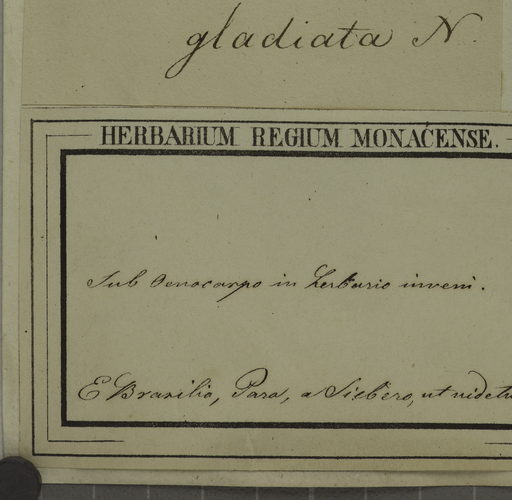 gladiata N.
HERBARIUM REGIUM MONACENSE.
Sub Oenocarpo in herbario inveni.
E Brasilia, Para, a Siebero, ut videtu